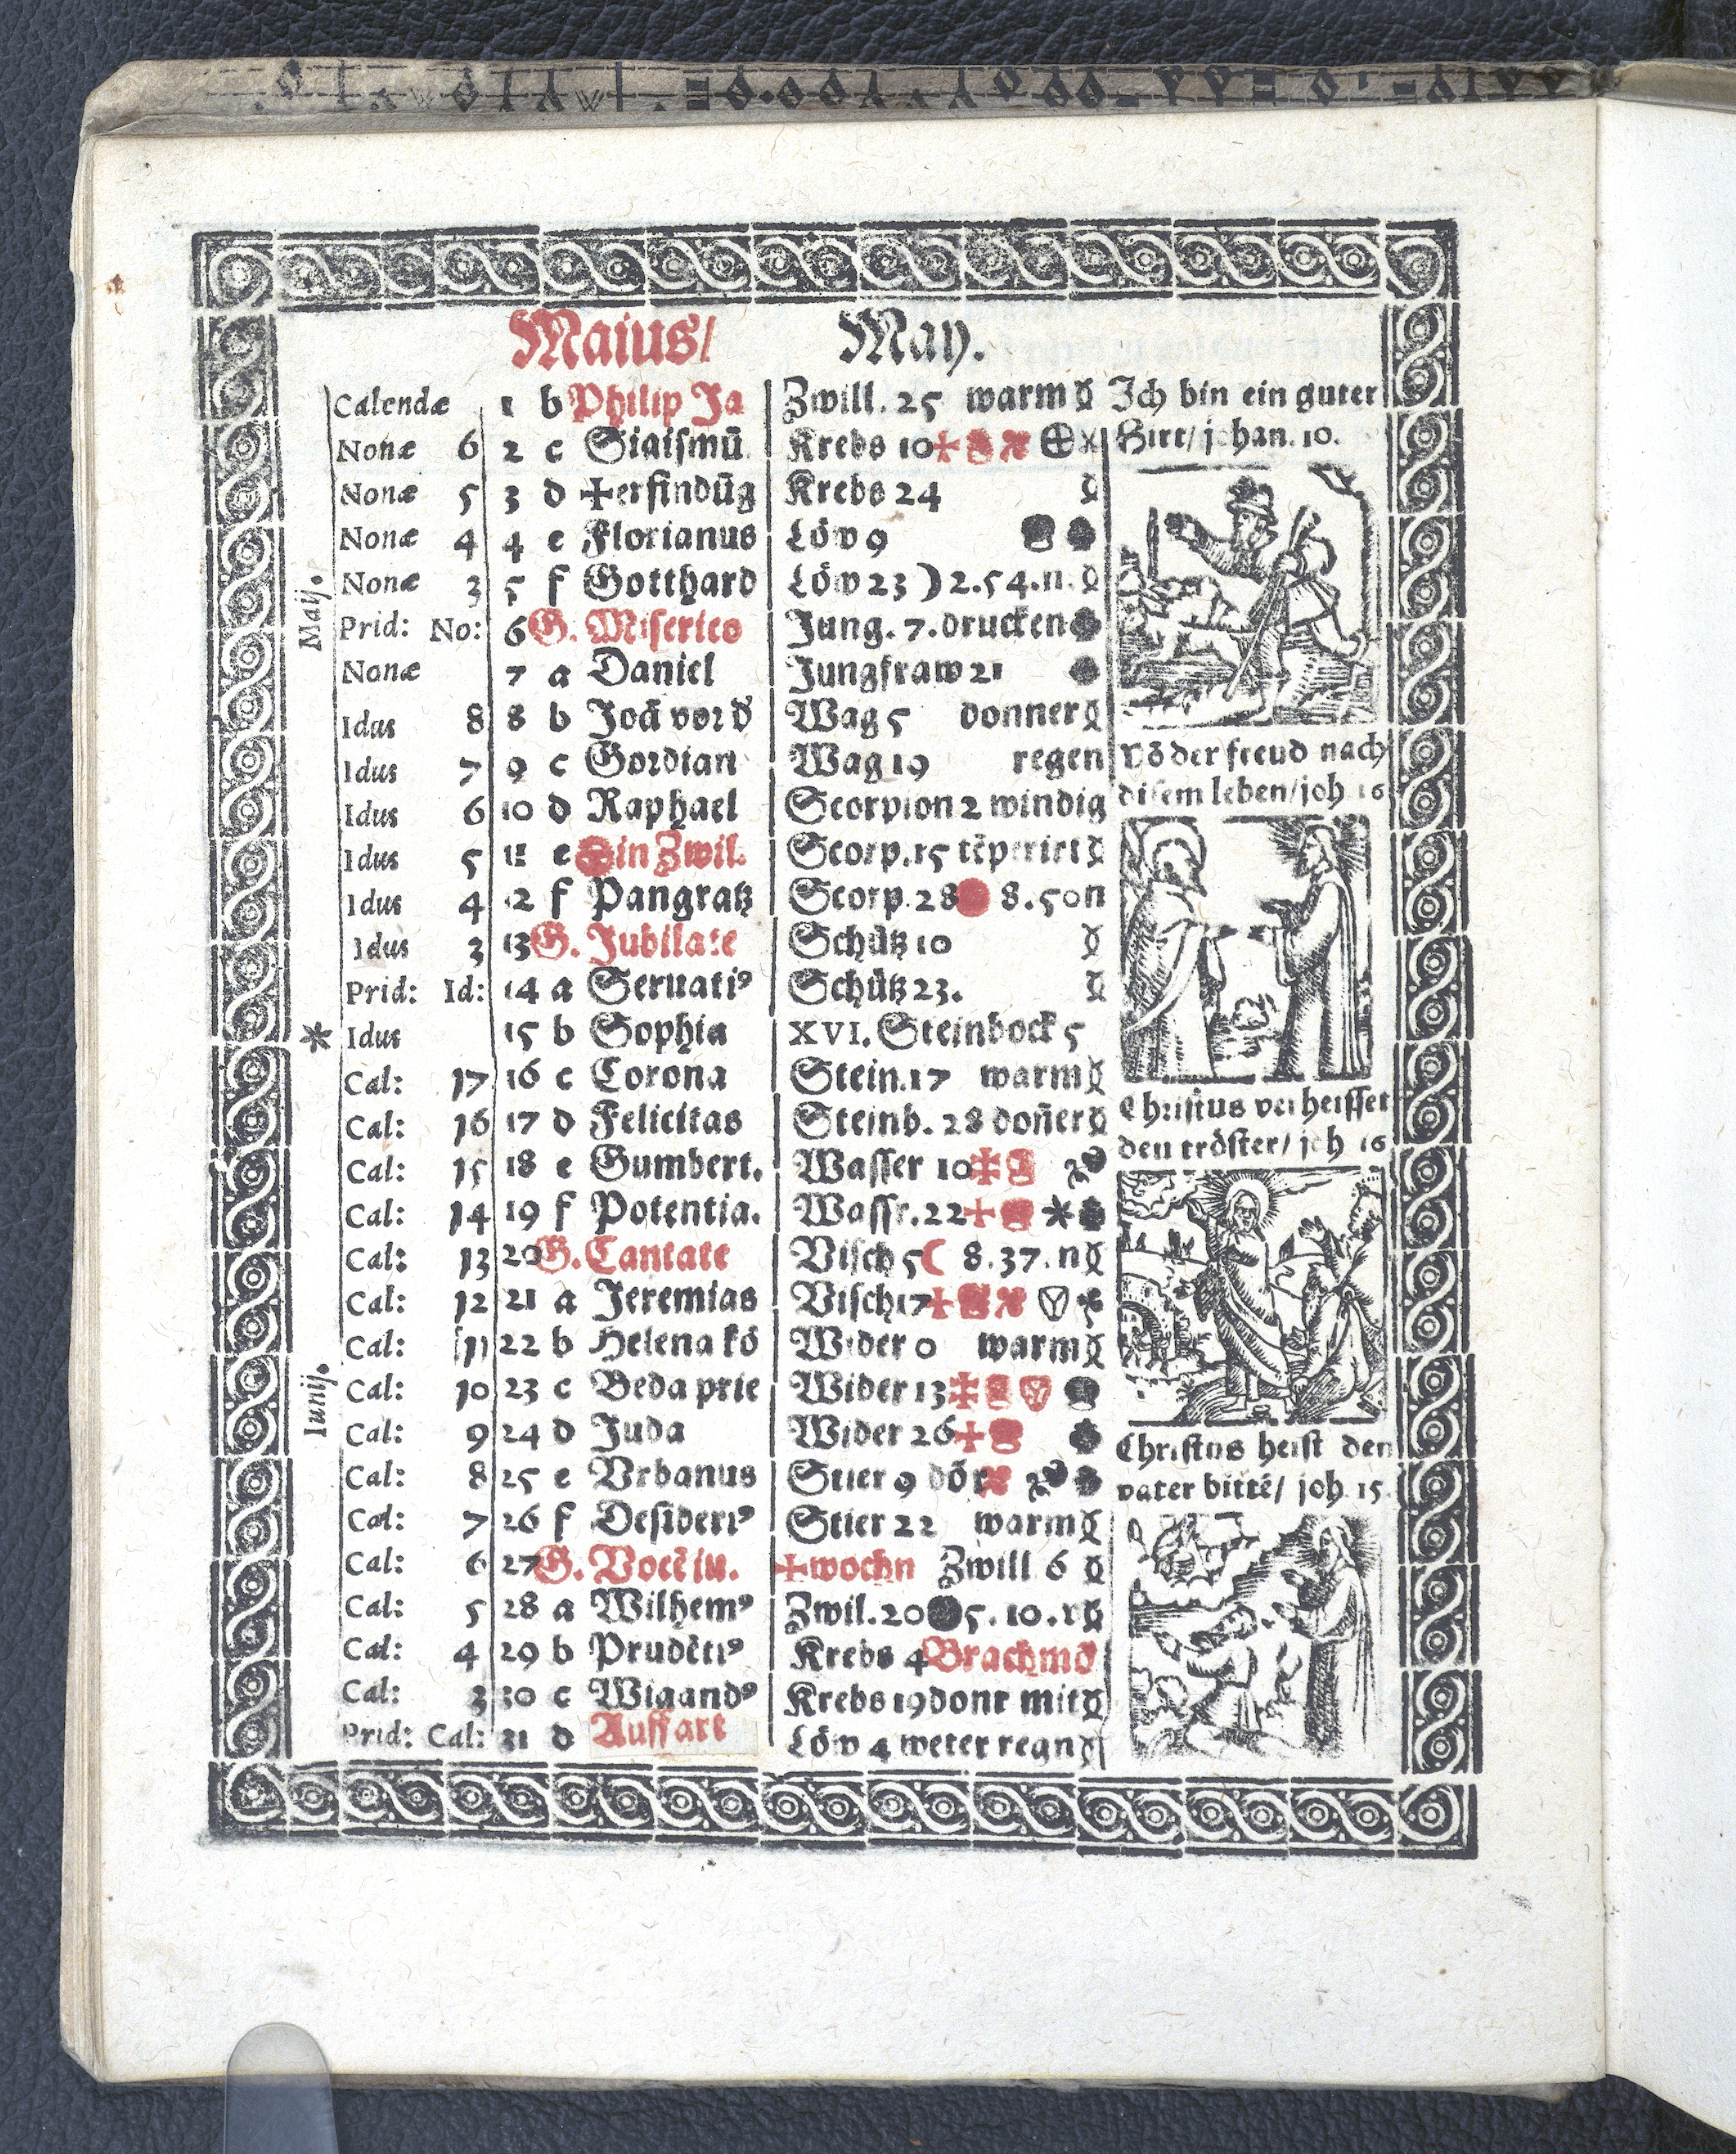 Maius/ May.
Calendæ 1 b Philip Ja Zwill. 25 warm
Nonæ 6 2 c Sigismū Krebs 10
Nonæ 5 3 d ✝erfindūg Krebs 24
Nonæ 4 4 e Florianus Löw 9
Nonæ 3 5 f Gotthard Löw 23 ☽ 2.54.n.
Prid: No: 6 G. Miserico Jung. 7. drucken
Nonæ 7 a Daniel Jungfraw 21
Idus 8 8 b Joā vor d Wag 5 donner
Idus 7 9 c Gordian Wag 19 regen
Idus 6 10 d Raphael Scorpion 2 windig
Idus 5 11 e in Zwil. Scorp. 15
Idus 4 12 f Pangratz Scorp. 28 8.50 n
Idus 3 13 G. Jubilate Schütz 10
Prid: Id: 14 a Seruati⁹ Schütz 23.
* Idus 15 b Sophia XVI. Steinbock 5
Cal: 17 16 c Corona Stein. 17 warm
Cal: 16 17 d Felicitas Steinb. 28 doñer
Cal: 15 18 e Gumbert. Wasser 10
Cal: 14 19 f Potentia. Wassr. 22 *
Cal: 13 20 G. Cantate Visch 5 ☾ 8.37.n
Cal: 12 21 a Jeremias Visch 17
Cal: 11 22 b Helena kö Wider 0 warm
Cal: 10 23 c Beda prie Wider 13
Cal: 9 24 d Juda Wider 26
Cal: 8 25 e Vrbanus Stier 9
Cal: 7 26 f Desideri⁹ Stier 22 warm
Cal: 6 27 G. Vocē iu. ✝wochn Zwill 6
Cal: 5 28 a Wilhem⁹ Zwil. 20 5.10.v
Cal: 4 29 b Prudēti⁹ Krebs 4 Brachmō
Cal: 3 30 c Wigand⁹ Krebs 19 donr mit
Prid: Cal: 31 d Auffart Löw 4 weter regn
Maij.
Iunij.
Ich bin ein guter
Hirt/ johan. 10.
Vō der freud nach
disem leben/ joh 16
Christus verheisset
den tröster/ joh 16
Christus heist den
vater bittē/ joh. 15.